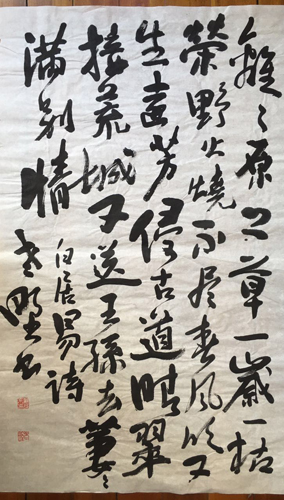 離〻原上草一歲一枯
榮野火燒不盡春風吹又
生遠芳侵古道晴翠
接荒城又送王孫去萋〻
滿別情
白居易詩